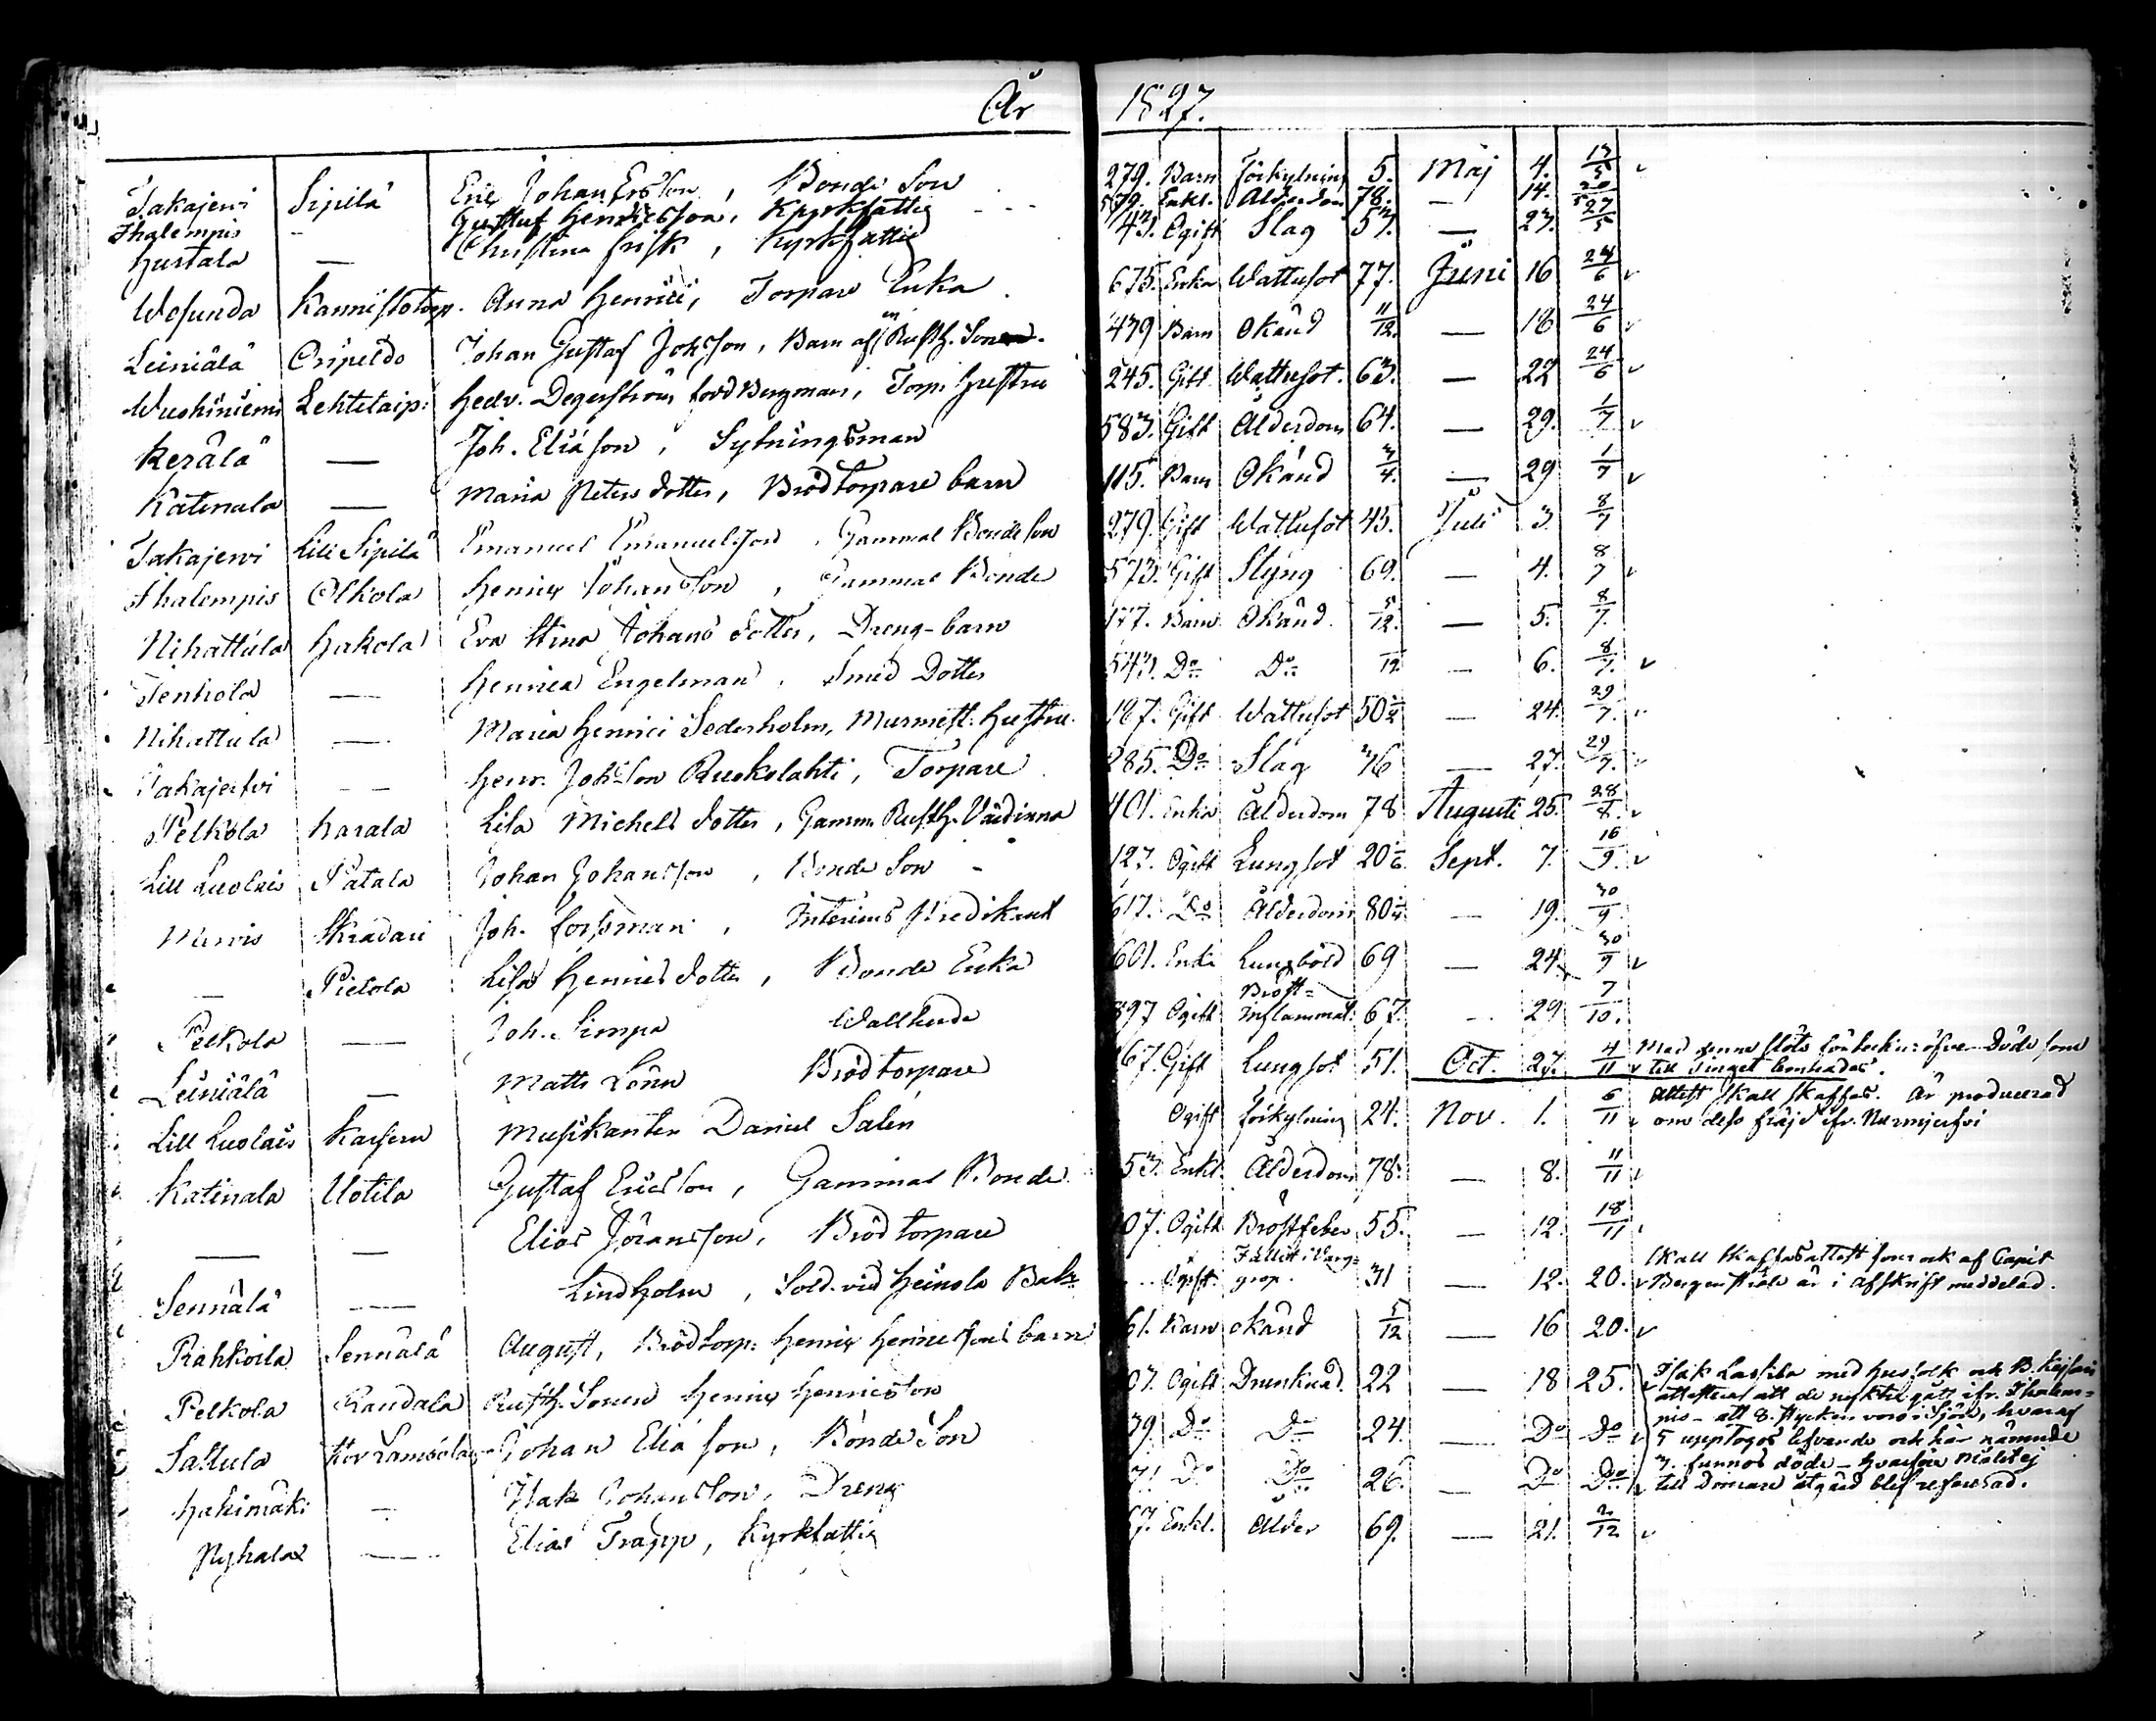 År 1827.
Takajerwi Sipilä Eric Johan Ersson, Bonde Son 279. Barn Förkylning 5. Maj 4. 13/5
Ihalempis - Gustaf Henricsson, Kyrkfattig 579. Enkl. Ålderdom 78. — 14. 20/5
Hurtala — Christina Frisk, Kyrkfattig 43. Ogift Slag 57. — 23. 27/5
Wesunda Kannisto torp. Anna Henrici, Torpare Enka 675. Enka Wattusot 77. Juni 16 24/6
Leiniälä Cripeldo Johan Gustaf Johsson, Barn af en Rusth. Son 479 Barn Okänd 11/12. — 18 24/6
Wuohiniemi Lehteta: Hedv. Degerström född Bergman, Torp. Hustru 245. Gift Wattusot. 63. — 22 24/6
Kerälä — Joh. Eliäson, Sytningsman 583. Gift Ålderdom 64. — 29. 1/7
Katinala — Maria Peters dotter, Brödtorpare barn 115. Barn Okänd 3/4. — 29 1/7
Takajerwi Lill Sipilä Emanuel Emanuelsson, Gammal Bonde son 279. Gift Wattusot 43. Juli 3. 8/7
Ihalempis Olkola Henric Johansson, Gammal Bonde 573. Gift Styng 69. — 4. 8/7
Nihattula Hakola Eva Stina Johans dotter, Dreng-barn 177. Barn Okänd. 5/12. — 5. 8/7.
Tenhola — Henrica Engelman, Smed Dotter 543. Do Do /12 — 6. 8/7.
Nihattula — Maria Henrici Sederholm, Murmest. Hustru. 187. Gift Wattusot 50 — 24. 29/7.
Takajerfvi — Henr. Johsson Ruokolahti, Torpare 285. Do Slag 46 — 27. 29/7.
Pelkola Karala Lisa Michels dotter, Gamm. Rusth. Värdinna 401. Enka Ålderdom 78 Augusti 25. 28/8.
Lill Luolais Patala Johan Johansson, Bonde Son 127. Ogift Lungsot 20 Sept. 7. 16/9.
Mervis Skradari Joh. Forsman, Interims Predikant 617. Do Ålderdom 80 — 19. 30/9.
— Pietola Lisa Henrics dotter, Bonde Enka 601. Enka Lungböld 69 — 24. 30/9
Pelkola — Joh. Simpa Wallherde 397 Ogift Bröst= Inflammat: 67. — 29 7/10.
Leiniälä — Matts Lönn Brödtorpare 67. Gift Lungsot 51. Oct. 27. 4/11 Med denna slöts förteckn: öfver Döde som
till Tinget lemnades.
Lill Luolais Kaiseru Musikanten Daniel Salén Ogift förkylning 24. Nov. 1. 6/11 Attest skall skaffas. Är producerad
om dess fräjd ifr. Nurmijerfvi
Katinala Uotila Gustaf Ericsson, Gammal Bonde 53. Enkl. Ålderdom 78. — 8. 11/11
— — Elias Jöransson, Brödtorpare 07. Ogift Bröstfeber 55. — 12. 18/11
Sennälä — Lindholm, Sold. vid Heinola Bat: Ogift. Fallit i Varg= grop. 31 — 12. 20. Skall skaffas attest som ock af Capit
Bergenstråle är i afskrift meddelad.
Rahkoila Sennälä August, Brödtorp: Henric Henricssons barn 61. Barn okänd 5/12 — 16 20.
Pelkola Raudala Rusth. Sonen Henric Henricsson 07. Ogift Drunknad. 22 — 18 25. Isak Lassila med husfolk och B. Keisari
attesterat att de nyktre gått ifr. Ihalem=
Sattula Stor Lamsola Johan Elia son, Bonde Son 79. Do Do 24. — Do Do pis – att 8. stycken voro i Sjön, hvaraf
5 upptogos lefvande och här nämnde
Hakimäki — Isak Johansson, Dreng 71. Do Do 26. — Do Do 3. funnos döde – hvarföre Målet ej
till domare åtgärd blef refererad.
Nyhala — Elias Trapp, Kyrkfattig 67. Enkl. Ålder 69. — 21. 2/12